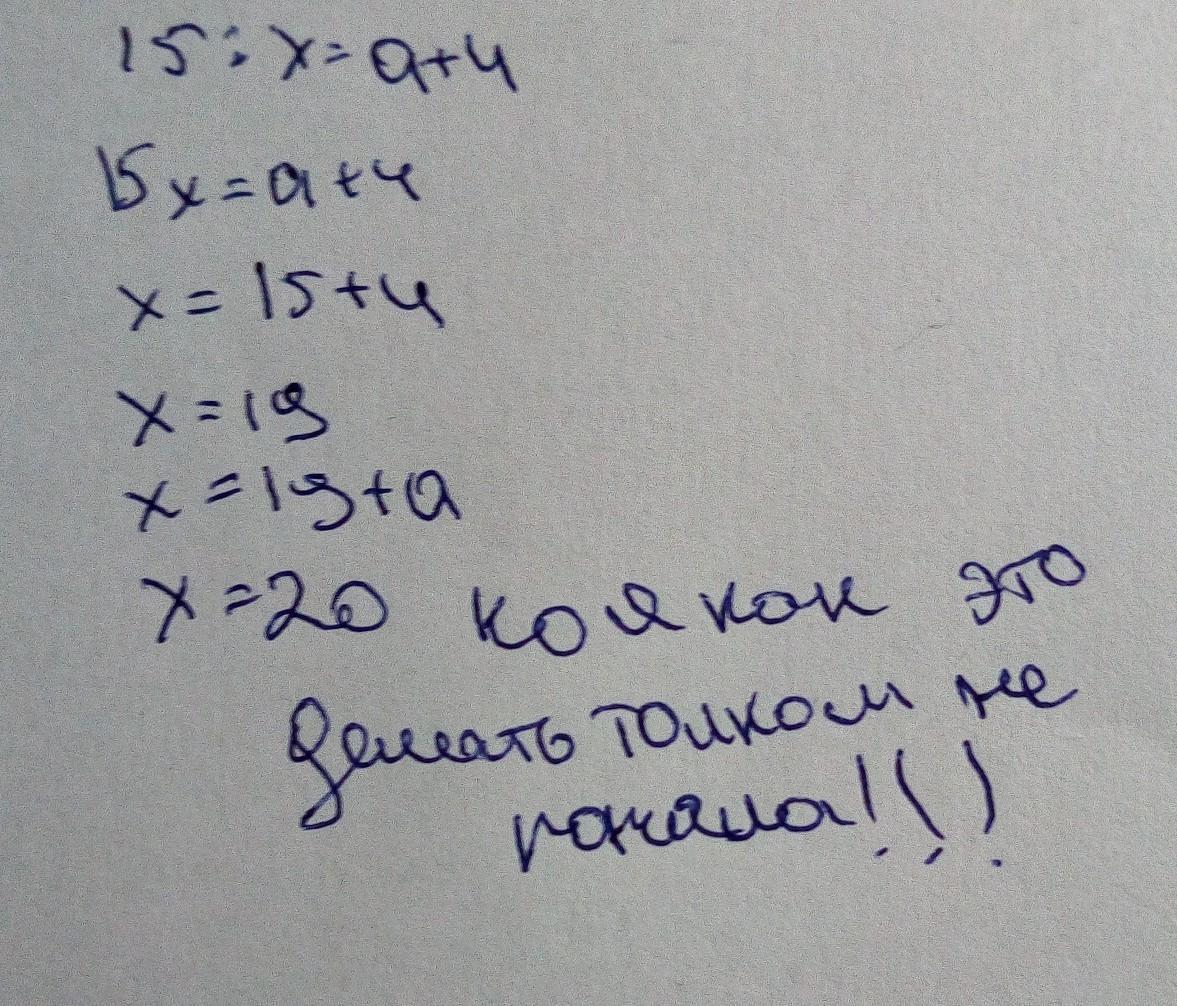 15 : x = a + 4
15x = a + 4
x = 15 + 4
x = 19
x = 19 + a
x = 20 кой как это
делать толком не
поняла!!!